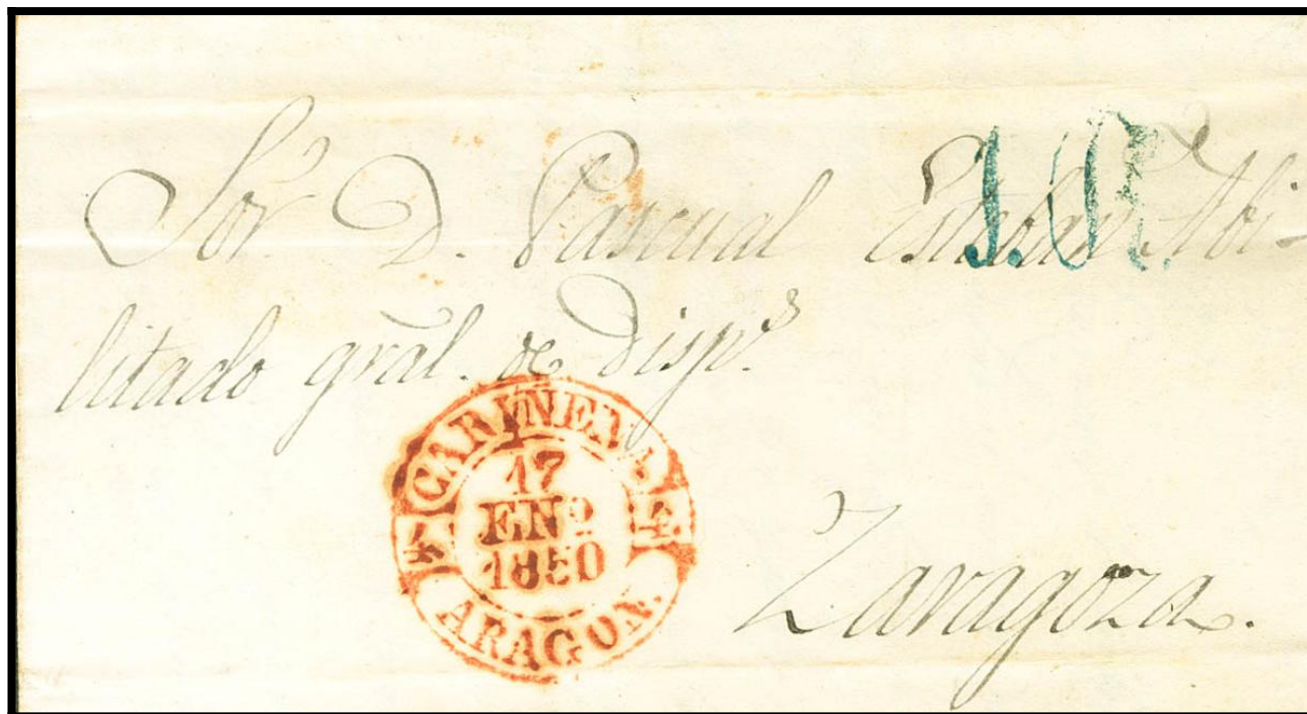 Sor. D. Pascual Esteban Abi-
litado gral. de Disps.
CARINENA
17
ENº
1850
ARAGON.
Zaragoza.